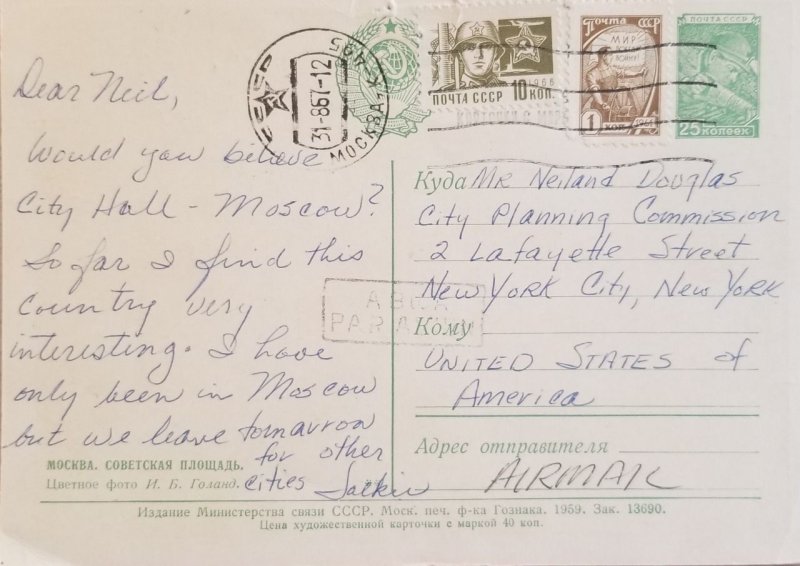 Dear Neil,
Would you believe
City Hall - Moscow?
So far I find this
country very
interesting. I have
only been in Moscow
but we leave tomorrow
for other
cities
МОСКВА. СОВЕТСКАЯ ПЛОЩАДЬ.
Цветное фото И. Б. Голанд.
СССР
31-867-12
МОСКВА
1966
ПОЧТА СССР 10 КОП.
Почта СССР
МИР
1 коп. 1961
ПОЧТА СССР
25 КОПЕЕК
Куда Mr Neiland Douglas
City Planning Commission
2 Lafayette Street
New York City, New York
АВИА
PAR AVION
Кому
United States of
America
Адрес отправителя
AIRMAIL
Издание Министерства связи СССР. Моск. печ. ф-ка Гознака. 1959. Зак. 13690.
Цена художественной карточки с маркой 40 коп.